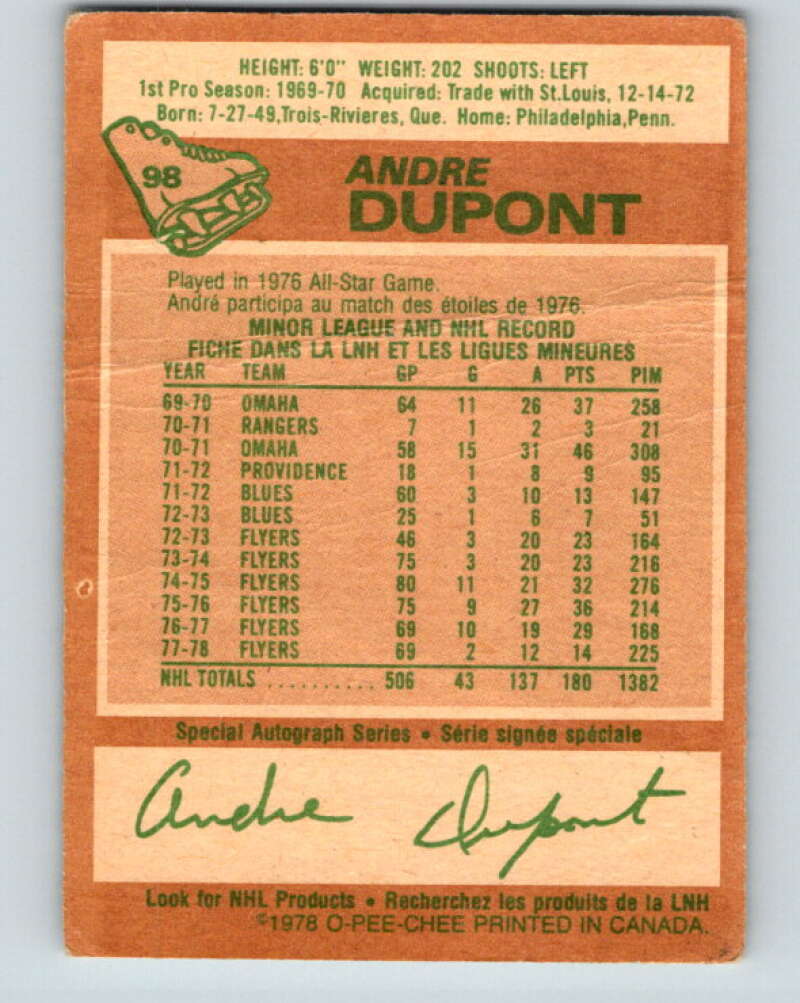 HEIGHT: 6'0" WEIGHT: 202 SHOOTS: LEFT
1st Pro Season: 1969-70 Acquired: Trade with St.Louis, 12-14-72
Born: 7-27-49,Trois-Rivieres, Que. Home: Philadelphia,Penn.
98
ANDRE
DUPONT
Played in 1976 All-Star Game.
André participa au match des étoiles de 1976.
MINOR LEAGUE AND NHL RECORD
FICHE DANS LA LNH ET LES LIGUES MINEURES
YEAR TEAM GP G A PTS PIM
69-70 OMAHA 64 11 26 37 258
70-71 RANGERS 7 1 2 3 21
70-71 OMAHA 58 15 31 46 308
71-72 PROVIDENCE 18 1 8 9 95
71-72 BLUES 60 3 10 13 147
72-73 BLUES 25 1 6 7 51
72-73 FLYERS 46 3 20 23 164
73-74 FLYERS 75 3 20 23 216
74-75 FLYERS 80 11 21 32 276
75-76 FLYERS 75 9 27 36 214
76-77 FLYERS 69 10 19 29 168
77-78 FLYERS 69 2 12 14 225
NHL TOTALS .......... 506 43 137 180 1382
Special Autograph Series • Série signée spéciale
Andre Dupont
Look for NHL Products • Recherchez les produits de la LNH
©1978 O-PEE-CHEE PRINTED IN CANADA.